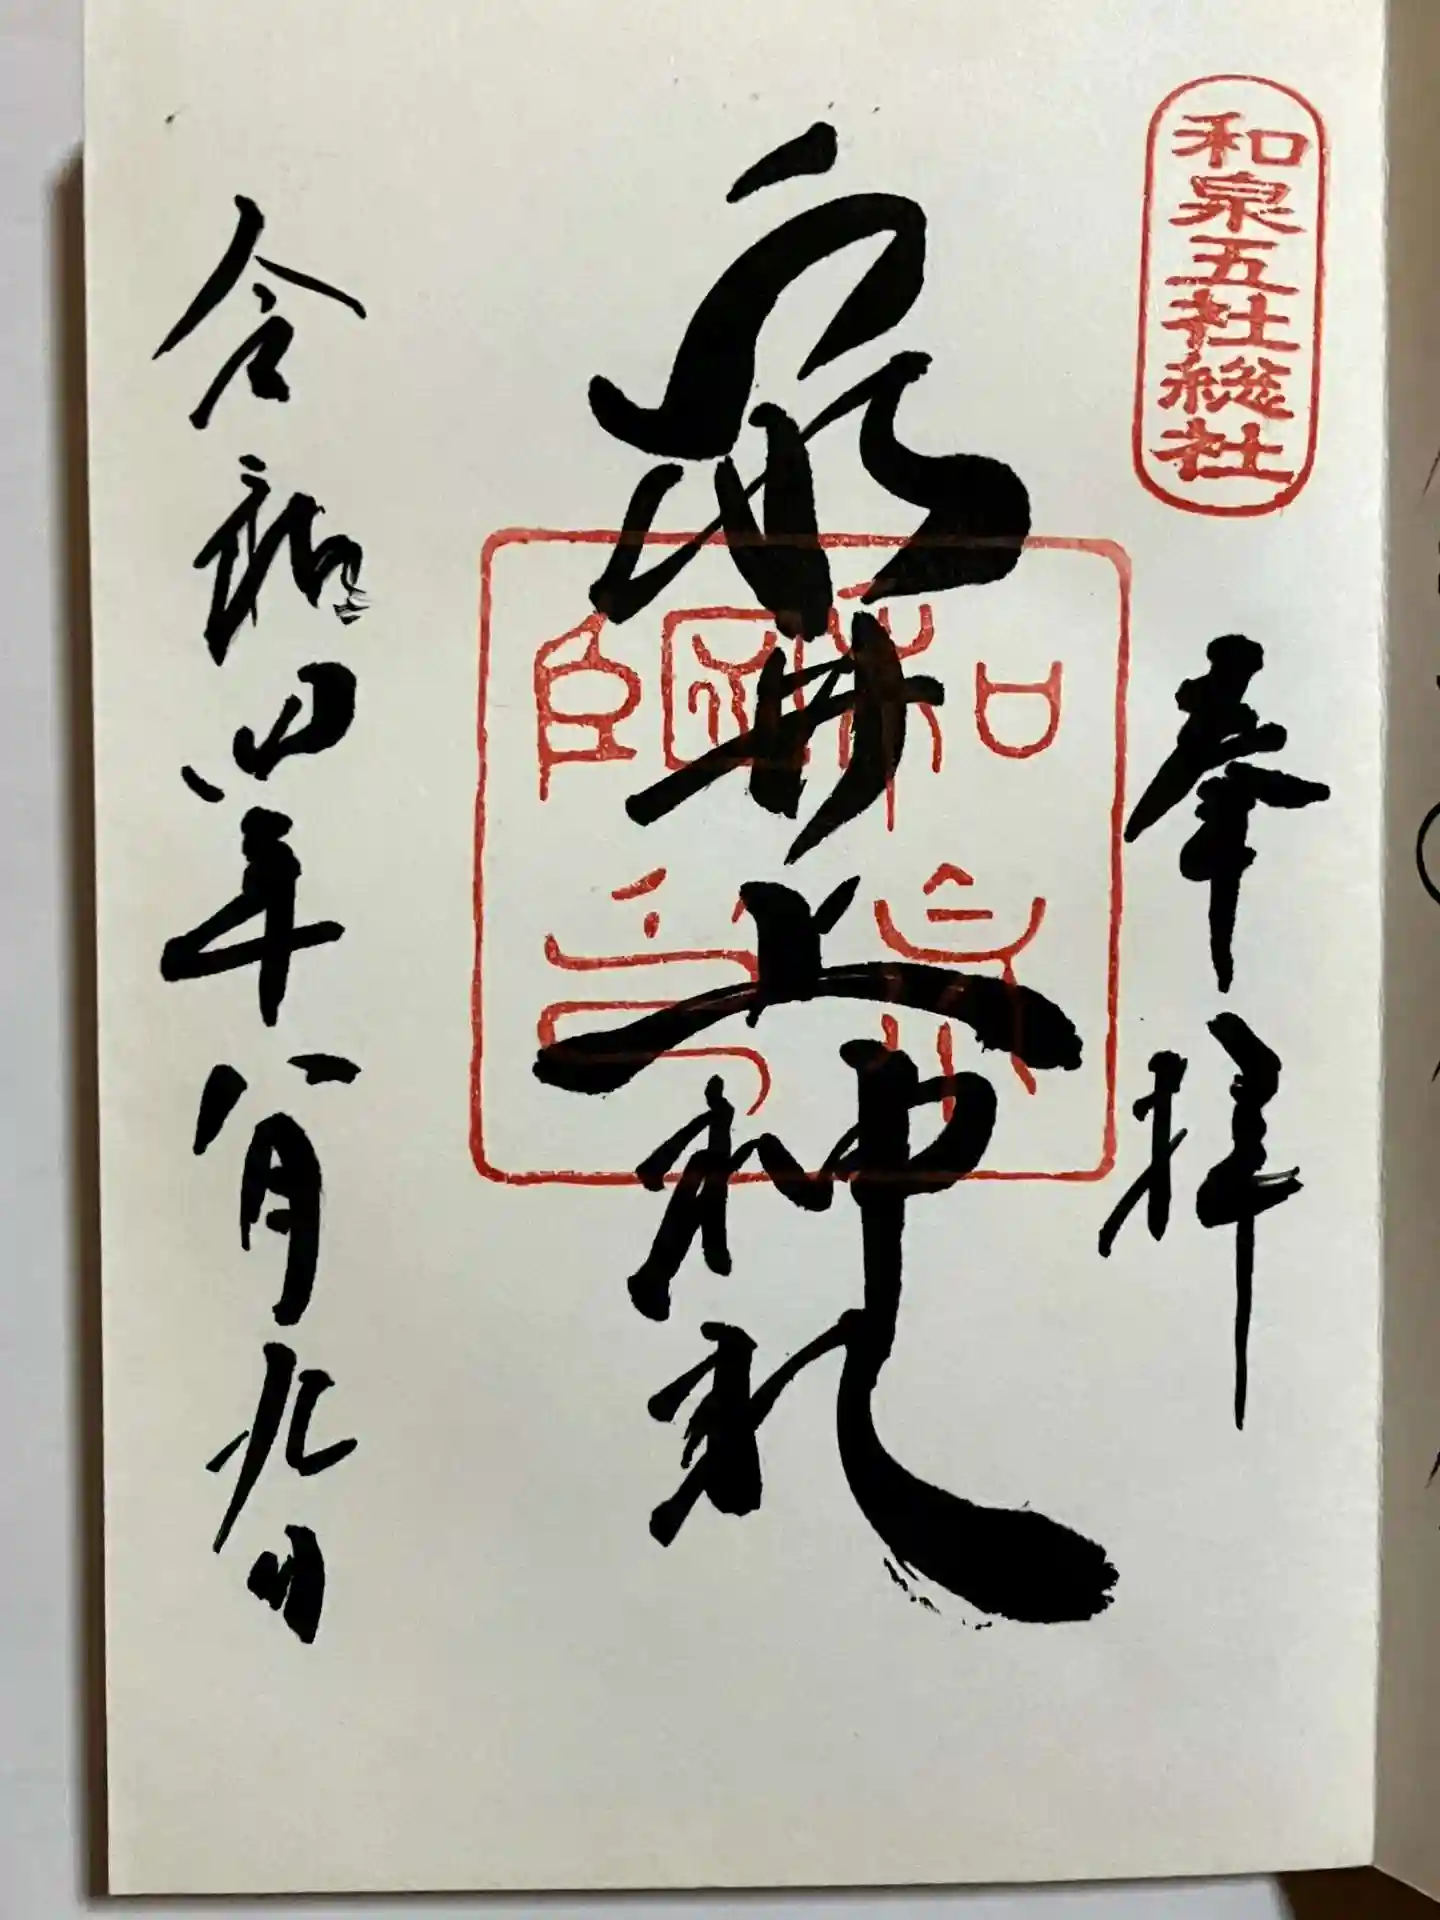 和泉五社総社
奉拝
泉井上神社
和泉国印
令和四年八月九日